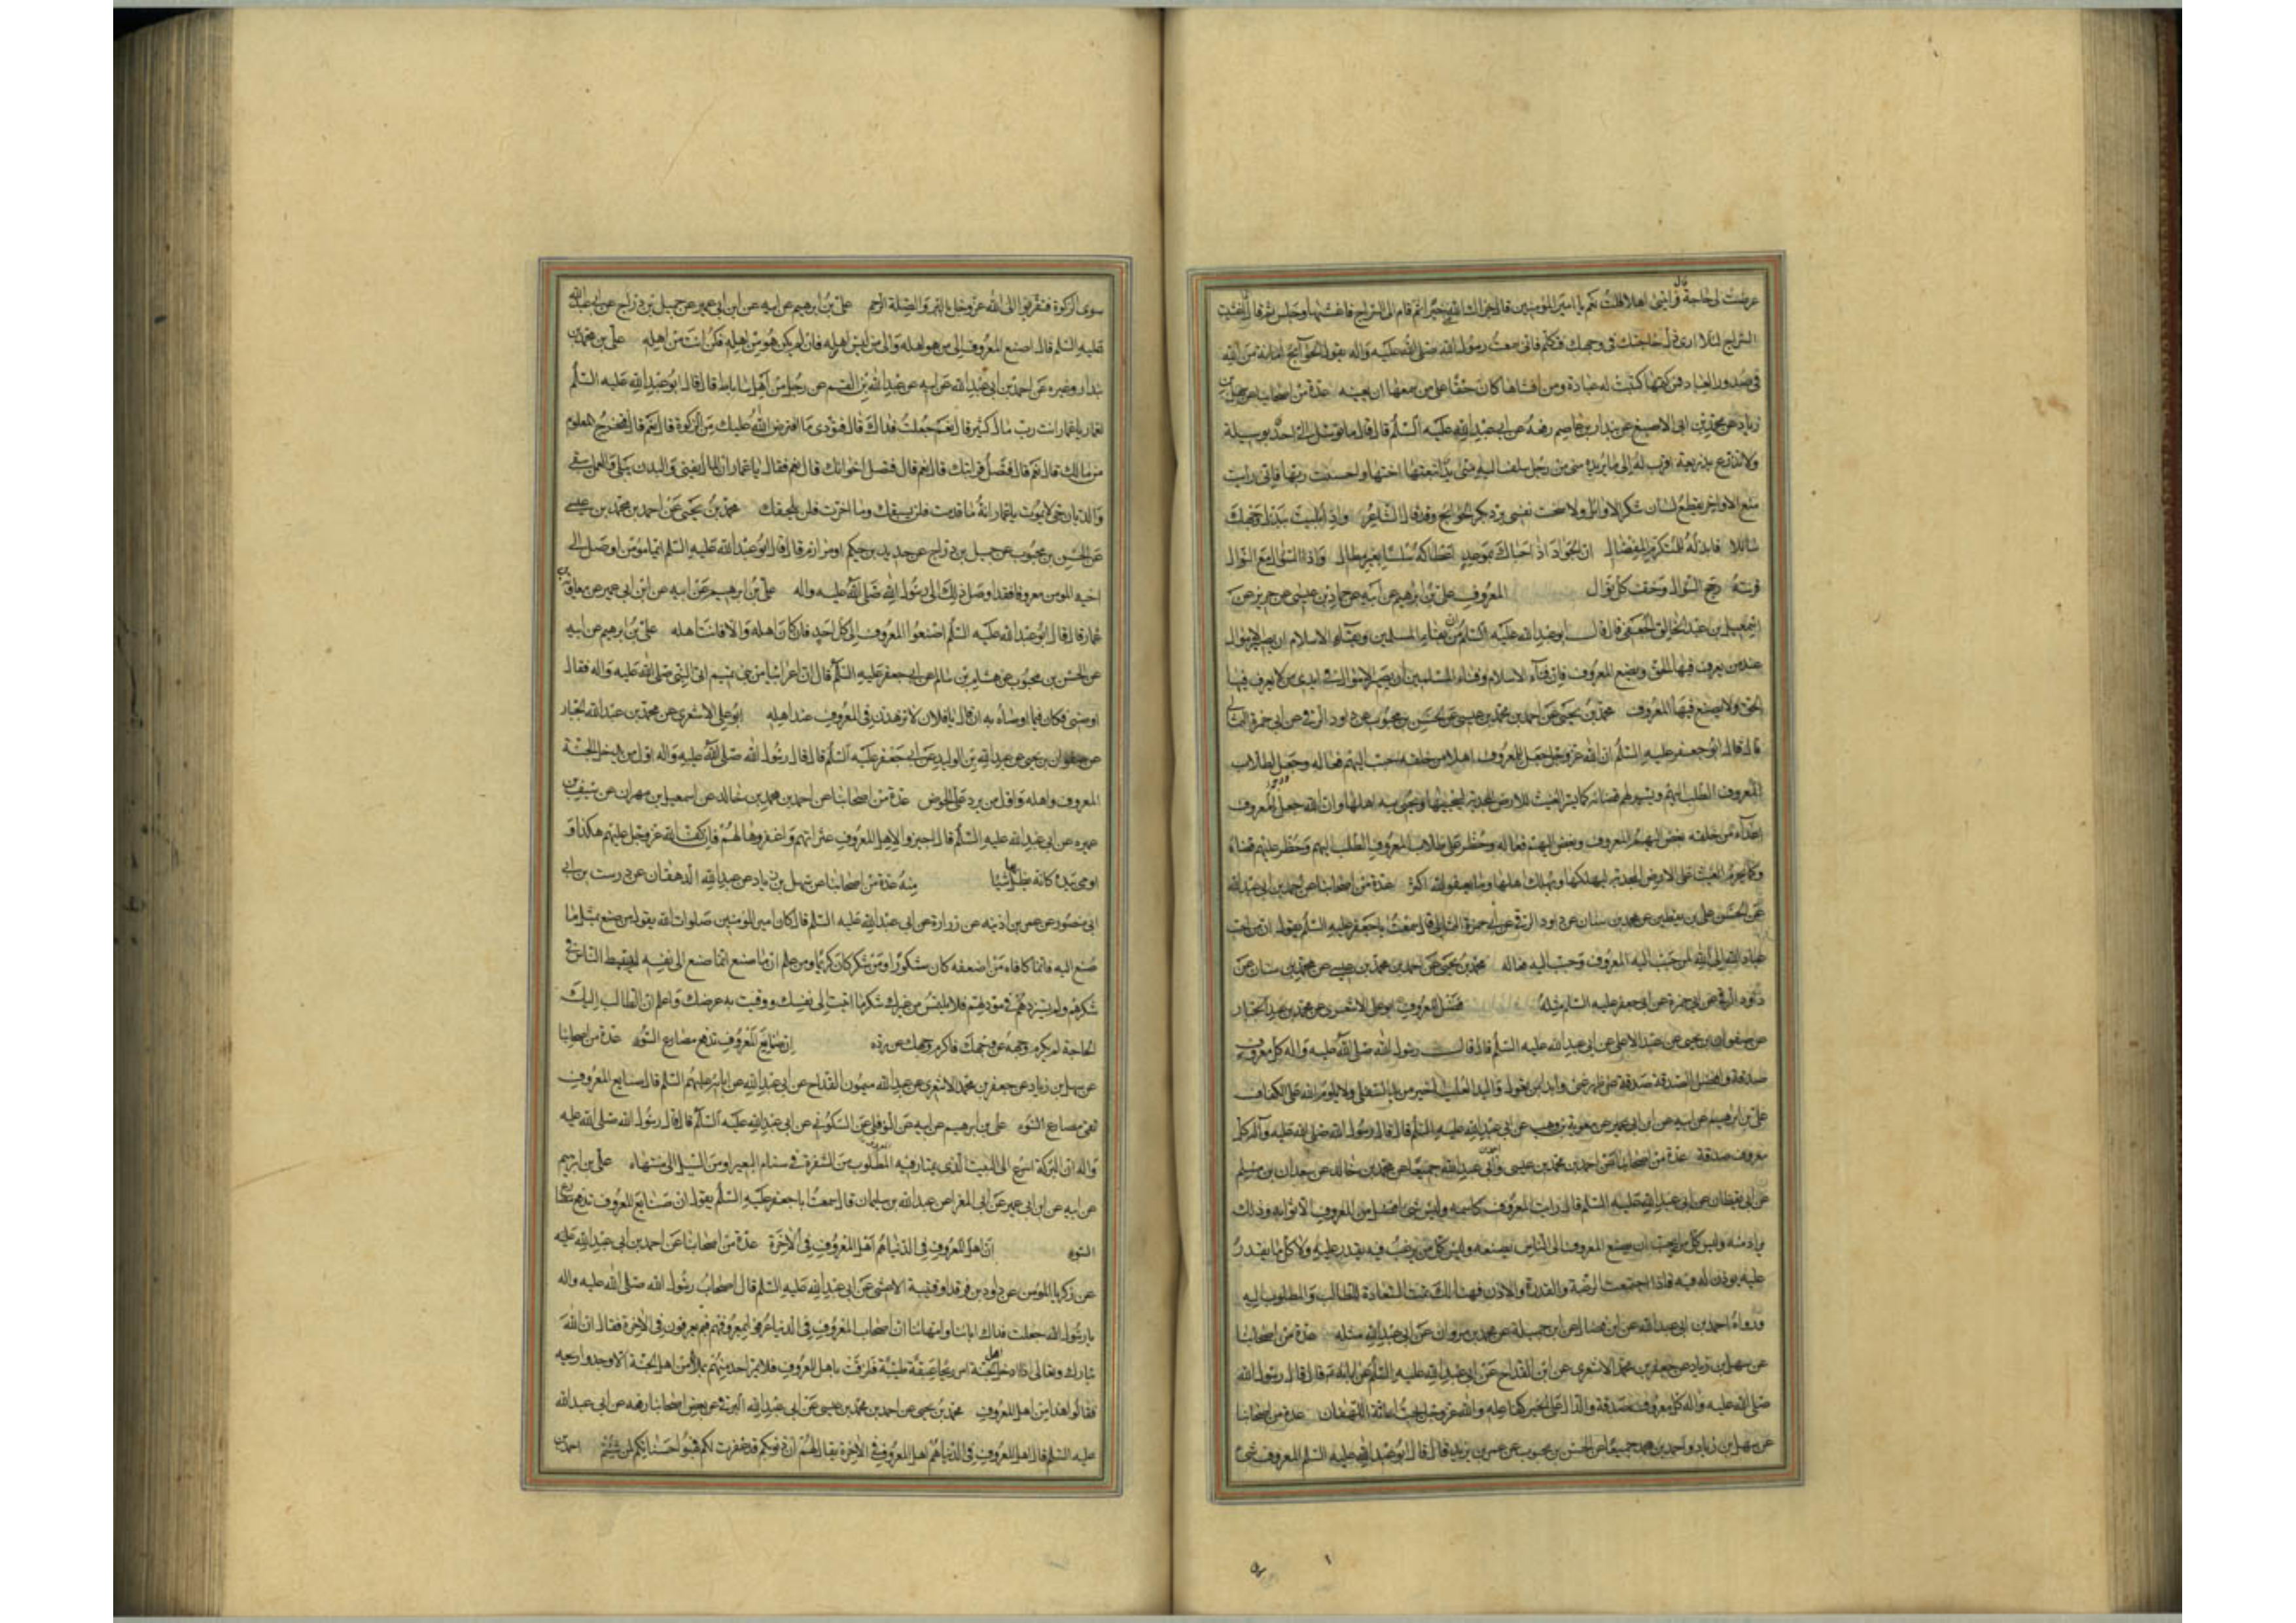 عرضت لى حاجة قال فرايتنى اهلا قلت نعم يا امير المؤمنين قال جزاك الله خيرا ثم قام الى السراج فاغشيها وجلس ثم قال انما اغشيت
السراج لئلا ارى ذل حاجتك فى وجهك فتكلم فانى سمعت رسول الله صلى الله عليه واله يقول الحوائج امانة من الله
فى صدور العباد فمن كتمها كتبت له عبادة ومن افشاها كان حقا على من سمعها ان يعينه عدة من اصحابنا عن سهل بن
زياد عن محمد بن ابى الاصبغ عن بندار بن عاصم رفعه عن ابى عبد الله عليه السلم قال قال ما توسل الى احد بوسيلة
ولا تذرع بذريعة اقرب له الى ما يريده منى من رجل سلف اليه منى يد اتبعتها اختها واحسنت ربها فانى رايت
منع الاواخر يقطع لسان شكر الاوائل ولا سخت نفسى برد بكر الحوائج وقد قال الشاعر واذا ابليت ببذل وجهك
سائلا فابذله للمتكرم المفضال ان الجواد اذا حباك بموعد اعطاكه سلسا بغير مطال واذا السؤال مع النوال
قرنته رجح السؤال وخف كل نوال المعروف على بن ابرهيم عن ابيه عن حماد بن عيسى عن حريز عن
اسمعيل بن عبد الخالق الجعفى قال قال ابو عبد الله عليه السلم ان من بقاء المسلمين وبقاء الاسلام ان يصير الاموال
عند من يعرف فيها الحق ويصنع المعروف فان فناء الاسلام وفناء المسلمين ان يصير الاموال فى ايدى من لا يعرف فيها
الحق ولا يصنع فيها المعروف محمد بن يحيى عن احمد بن محمد بن عيسى عن الحسن بن محبوب عن داود الرقى عن ابى حمزة الثمالى
قال قال ابو جعفر عليه السلم ان الله عز وجل جعل للمعروف اهلا من خلقه حبب اليهم فعاله ووجه لطلاب
المعروف الطلب اليهم ويسر لهم قضائه كما يسر الغيث للارض المجدبة ليحييها ويحيى به اهلها وان الله جعل للمعروف
اعداء من خلقه بغض اليهم المعروف وبغض اليهم فعاله وحظر على طلاب المعروف الطلب اليهم وحظر عليهم قضاه
وكما يحرم الغيث على الارض المجدبة ليهلكها ويهلك اهلها وما يعفو الله اكثر عدة من اصحابنا عن احمد بن ابى عبد الله
عن الحسن على بن يقطين عن محمد بن سنان عن داود الرقى عن ابى حمزة الثمالى قال سمعت ابا جعفر عليه السلم يقول ان من احب
عباد الله الى الله لمن حبب اليه المعروف وحبب اليه فعاله محمد بن يحيى عن احمد بن محمد بن عيسى عن محمد بن سنان عن
داود الرقى عن ابى حمزة عن ابى جعفر عليه السلم مثله فضل المعروف ابو على الاشعرى عن محمد بن عبد الجبار
عن صفوان بن يحيى عن عبد الاعلى عن ابى عبد الله عليه السلم قال قال رسول الله صلى الله عليه واله كل معروف
صدقة وافضل الصدقة صدقة عن ظهر غنى وابدا بمن يعول واليد العليا خير من اليد السفلى ولا يلوم الله على الكفاف
على بن ابرهيم عن ابيه عن ابن ابى عمير عن معوية بن وهب عن ابى عبد الله عليه السلم قال قال رسول الله صلى الله عليه وآله كل
معروف صدقة عدة من اصحابنا عن احمد بن محمد بن عيسى واحمد بن ابى عبد الله جميعا عن محمد بن خالد عن سعدان بن مسلم
عن ابى يقظان عن ابى عبد الله عليه السلم قال رايت المعروف كاسمه وليس شئ افضل من المعروف الا ثوابه وذلك
يراد منه وليس كل من يحب ان يصنع المعروف الى الناس يصنعه وليس كل من يرغب فيه يقدر عليه ولا كل من يقدر
عليه يوذن له فيه فاذا اجتمعت الرغبة والقدرة والاذن فهنالك تمت السعادة للطالب والمطلوب اليه
ورواه احمد بن ابى عبد الله عن ابن فضال عن ابى جميلة عن محمد بن مروان عن ابى عبد الله مثله عدة من اصحابنا
عن سهل بن زياد عن جعفر بن محمد الاشعرى عن ابن القداح عن ابى عبد الله عليه السلم عن ابائه قال قال رسول الله
صلى الله عليه واله كل معروف صدقة والدال على الخير كفاعله والله عز وجل يحب اغاثة اللهفان عدة من اصحابنا
عن سهل بن زياد واحمد بن محمد جميعا عن الحسن بن محبوب عن عمر بن يزيد قال قال ابو عبد الله عليه السلم المعروف شئ
سوى الزكوة فتقربوا الى الله عز وجل بالبر والصلة الرحم على بن ابرهيم عن ابيه عن ابن ابى عمير عن جميل بن دراج عن ابى عبد الله
عليه السلم قال اصنع المعروف الى من هو اهله والى من ليس اهله فان لم يكن هو من اهله فكن انت من اهله على بن محمد بن
بندار وغيره عن احمد بن ابى عبد الله عن ابيه عن عبد الله بن القسم عن رجل من اهل ساباط قال قال ابو عبد الله عليه السلم
لعمار يا عمار انت رب مال كثير قال نعم جعلت فداك قال فتؤدى ما افترض الله عليك من الزكوة قال نعم قال فتخرج المعلوم
من مالك قال نعم قال فتصل قرابتك قال نعم قال فتصل اخوانك قال نعم فقال يا عمار ان المال يفنى والبدن يبلى والعمل يبقى
والديان حى لا يموت يا عمار انه ما قدمت فلن يسبقك وما اخرت فلن يلحقك محمد بن يحيى عن احمد بن محمد بن عيسى
عن الحسن بن محبوب عن جميل بن دراج عن حديد بن حكيم او مرازم قال قال ابو عبد الله عليه السلم ايما مؤمن اوصل الى
اخيه المومن معروفا فقد اوصل ذلك الى رسول الله صلى الله عليه واله على بن ابرهيم عن ابيه عن ابن ابى عمير عن معاوية بن
عمار قال قال ابو عبد الله عليه السلم اصنعوا المعروف الى كل احد فان كان اهله والا فانت اهله على بن ابرهيم عن ابيه
عن الحسن بن محبوب عن هشام بن سالم عن ابى جعفر عليه السلم قال ان اعرابيا من بنى تميم اتى النبى صلى الله عليه واله فقال
اوصنى فكان فيما اوصاه به ان قال يا فلان لا تزهدن فى المعروف عند اهله ابو على الاشعرى عن محمد بن عبد الله الجبار
عن صفوان بن يحيى عن عبد الله بن الوليد عن ابى جعفر عليه السلم قال قال رسول الله صلى الله عليه واله اول من يدخل الجنة
المعروف واهله واول من يرد على الحوض عدة من اصحابنا عن احمد بن محمد بن خالد عن اسمعيل بن مهران عن سيف بن
عميره عن ابى عبد الله عليه السلم قال اجيزوا لاهل المعروف عثراتهم واغفروها لهم فان كف الله عز وجل عليهم هكذا و
اومى بيده كانه يظل بها شيئا منه عدة من اصحابنا عن سهل بن زياد عن عبد الله الدهقان عن درست بن ابى
ابى منصور عن عمر بن اذينه عن زرارة عن ابى عبد الله عليه السلم قال كان امير المؤمنين صلوات الله يقول من صنع بمثل ما
صنع اليه فانما كافاه ومن اضعفه كان شكورا ومن شكر كان كريما ومن علم ان ما صنع انما صنع الى نفسه لم يستبط الناس فى
شكرهم ولم يستزدهم فى مودتهم فلا يلتمس من غيرك شكر ما اتيت الى نفسك ووقيت به عرضك واعلم ان الطالب اليك
الحاجة لم يكرم وجهه عن وجهك فاكرم وجهك عن رده ان صنايع المعروف تدفع مصارع السوء عدة من اصحابنا
عن سهل بن زياد عن جعفر بن محمد الاشعرى عن عبد الله ميمون القداح عن ابى عبد الله عن ابائه عليهم السلم قال صنايع المعروف
تقى مصارع السوء على بن ابرهيم عن ابيه عن النوفلى عن السكونى عن ابى عبد الله عليه السلم قال قال رسول الله صلى الله عليه
واله ان البركة اسرع الى البيت الذى يمتار فيه المعروف من الشفرة فى سنام البعير او من السيل الى منتهاه على بن ابرهيم
عن ابيه عن ابن ابى عمير عن ابى المغرا عن عبد الله بن سليمان قال سمعت ابا جعفر عليه السلم يقول ان صنايع المعروف تدفع مصارع
السوء ان اهل المعروف فى الدنيا هم اهل المعروف فى الاخرة عدة من اصحابنا عن احمد بن ابى عبد الله عليه
عن زكريا المومن عن داود بن فرقد او قتيبة الاعشى عن ابى عبد الله عليه السلم قال اصحاب رسول الله صلى الله عليه واله
يا رسول الله جعلت فداك ابائنا وامهاتنا ان اصحاب المعروف فى الدنيا عرفوا بمعروفهم فبم يعرفون فى الاخرة فقال ان الله
تبارك وتعالى اذا دخل اهل الجنة امر ريحا عبقة طيبة فلزقت باهل المعروف فلا يمر احد منهم بملا من اهل الجنة الا وجدوا ريحه
فقالوا هذا من اهل المعروف محمد بن يحيى عن احمد بن محمد بن عيسى عن ابى عبد الله البرقى عن بعض اصحابنا رفعه عن ابى عبد الله
عليه السلم قال اهل المعروف فى الدنيا هم اهل المعروف فى الاخرة يقال لهم ان ذنوبكم قد غفرت لكم فهبوا حسناتكم لمن شئتم احمد بن